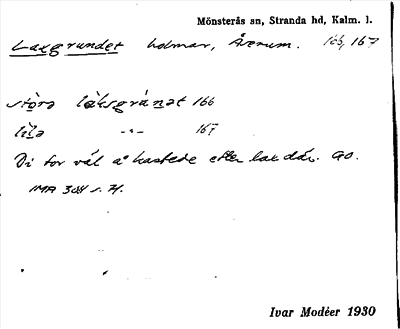 Mönsterås sn, Stranda hd, Kalm. l.
Laxgrundet holmar, Åverum. 166, 167
stora láksgrúnət 166
lila -"- 167
Di for väl å kastede efter lax där. GO.
IMA 304 s. 71.
Ivar Modéer 1930